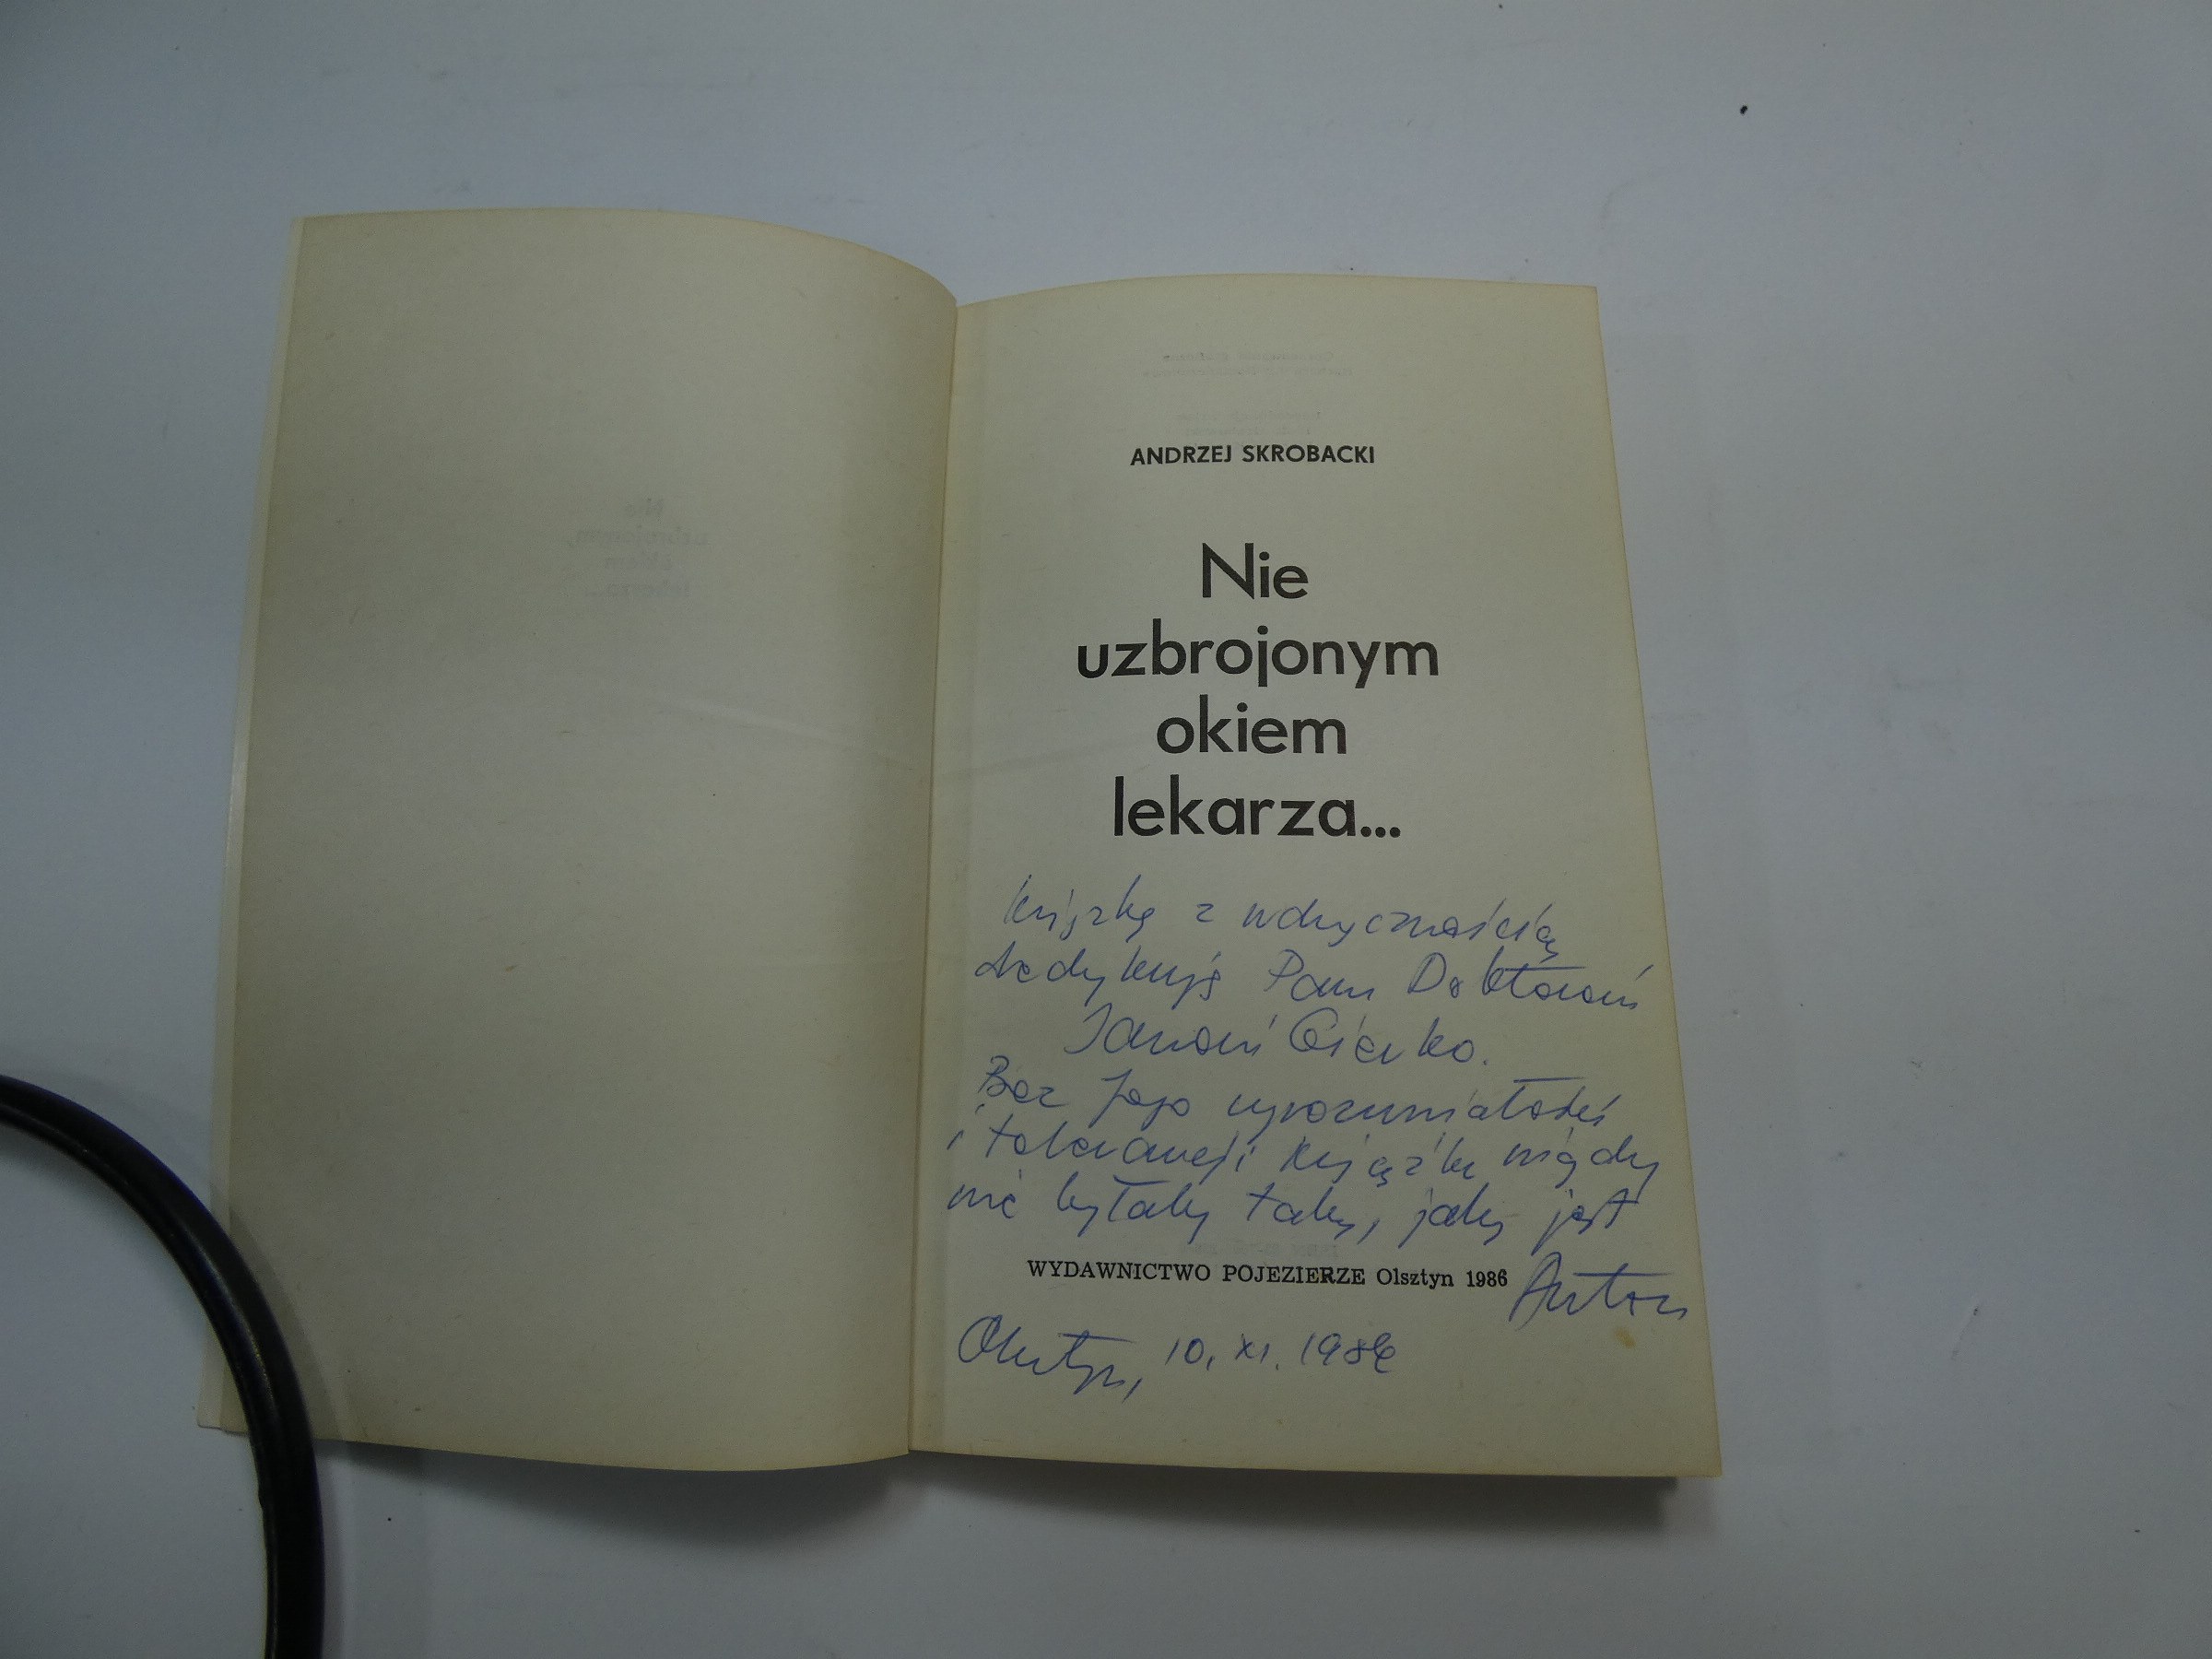 ANDRZEJ SKROBACKI
Nie
uzbrojonym
okiem
lekarza...
Książkę z wdzięcznością
dedykuję Panu Doktorowi
Janowi
Bez Jego wyrozumiałości
i tolerancji książka nigdy
nie byłaby taką, jaką jest
WYDAWNICTWO POJEZIERZE Olsztyn 1986
Autor
Olsztyn, 10. XI. 1986
Nie
uzbrojonym
okiem
lekarza...